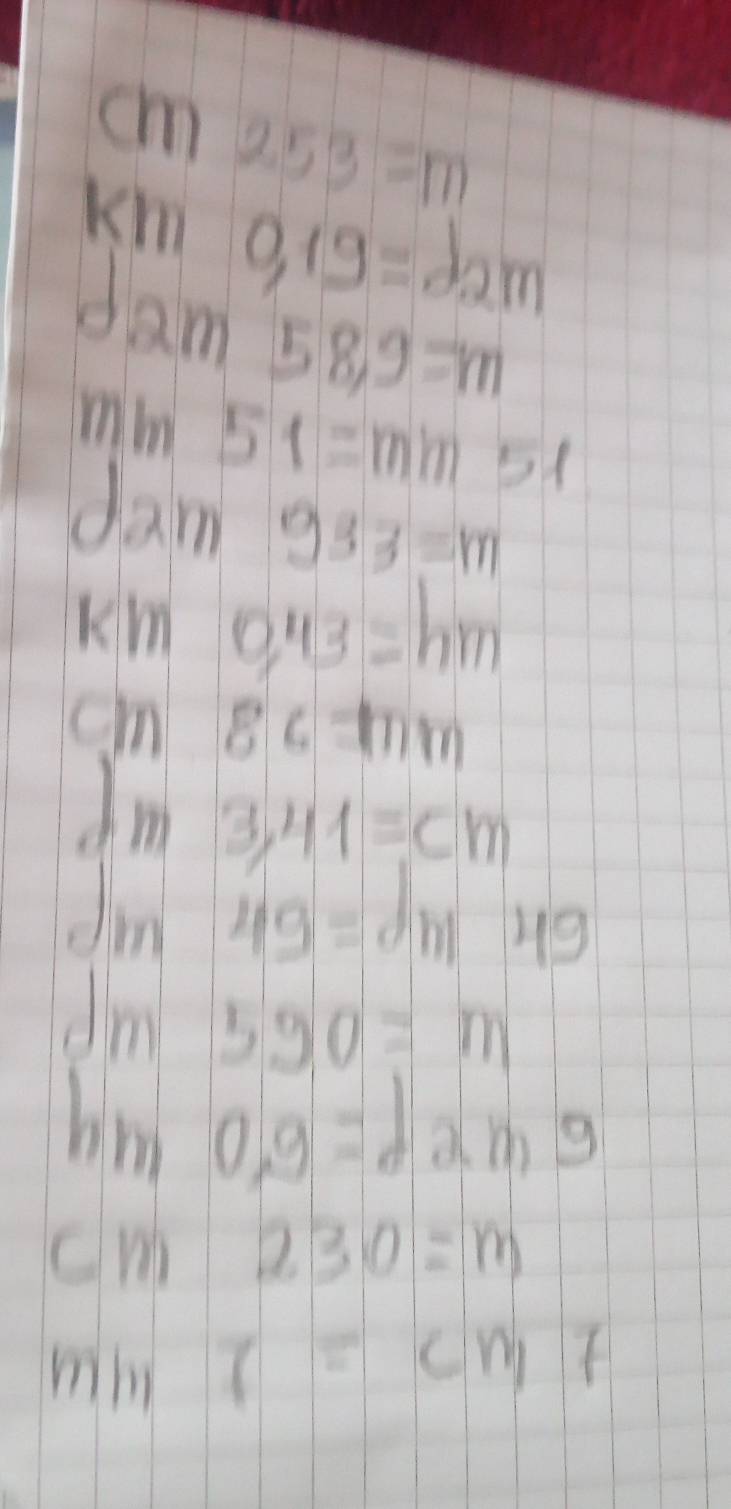 cm 253 = m
km 0,19 = dam
dam 58,9 = m
mm 51 = mm 51
dam 933 = m
km 0,43 = hm
cm 86 = mm
dm 3,41 = cm
dm 49 = dm 49
dm 590 = m
hm 0,9 = dam 9
cm 230 = m
mm 7 = cm 7